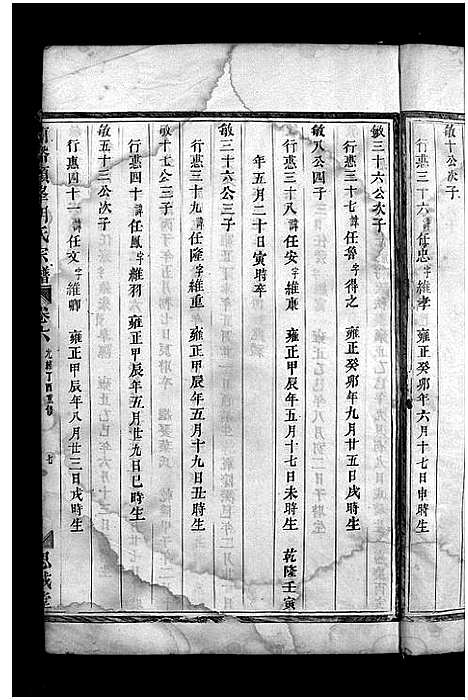 敏十公子
行惠三十六諱任忠字維孝 雍正癸卯年六月十七日申時生
敏三十六公次子
行惠三十七諱任魯字得之 雍正癸卯年九月廿五日戌時生
敏八公四子
行惠三十八諱任安字維康 雍正甲辰年五月十七日未時生 乾隆壬寅
年五月二十日寅時卒
敏三十六公三子
行惠三十九諱任隆字維重 雍正甲辰年五月十九日丑時生
敏十七公三子
行惠四十諱任鳳字維羽 雍正甲辰年五月廿九日巳時生
敏五十三公次子
行惠四十一諱任文字維卿 雍正甲辰年八月廿三日戌時生
胡氏宗譜 卷六 光緒丁酉重修 七 思誠堂